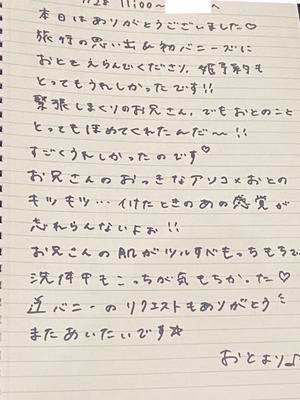 1/28 11:00~
本日はありがとうございました♡
旅行の思い出&初バニーズに
おとをえらんでくださり、姫予約も
とってもうれしかったです!!
緊張しまくりのお兄さん、でもおとのこと
とってもほめてくれたんだ〜!!
すごくうれしかったのです♡
お兄さんのおっきなアソコとおとの
キツキツ…イけたときのあの感覚が
忘れらんないよぉ!!
お兄さんの肌がツルすべもっちもちで、
洗体中もこっちが気もちかった♡
逆バニーのリクエストもありがとう
またあいたいです☆
おとより♪